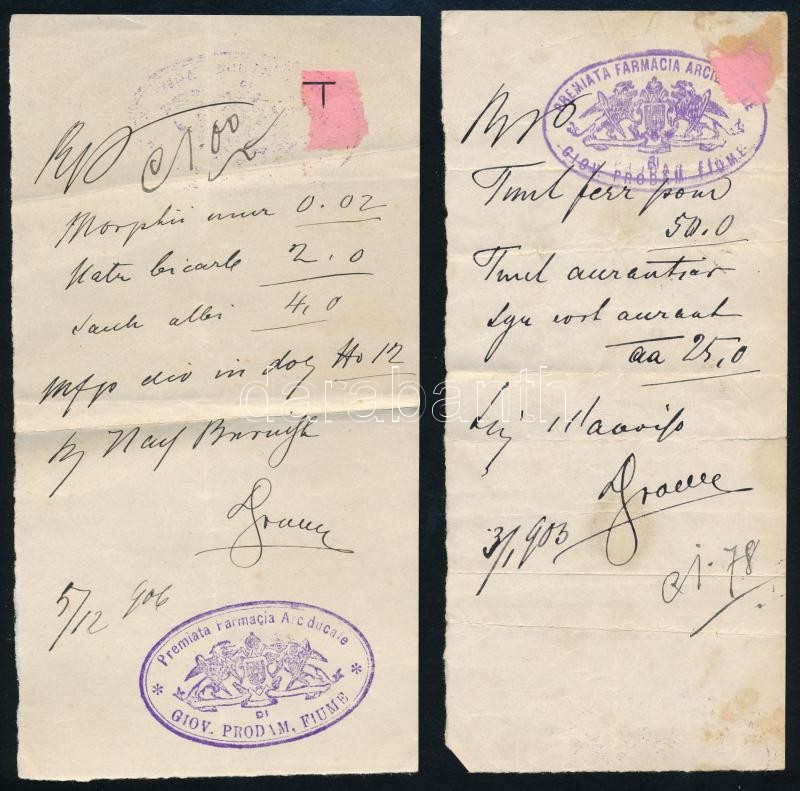 Rp
1.00
T
Morphii mur 0.02
Natr bicarb 2.0
Sacch albi 4,0
Mfp div in dos No 12
Dr
5/12 906
Premiata Farmacia Arciducale
DI
GIOV. PRODAM, FIUME
PREMIATA FARMACIA ARCIDUCALE
DI
GIOV. PRODAM FIUME
Rp
Tinct ferr pom
50.0
Tinct aurantior
Syr cort aurant
aa 25,0
3/1 903
1.78
darabanth